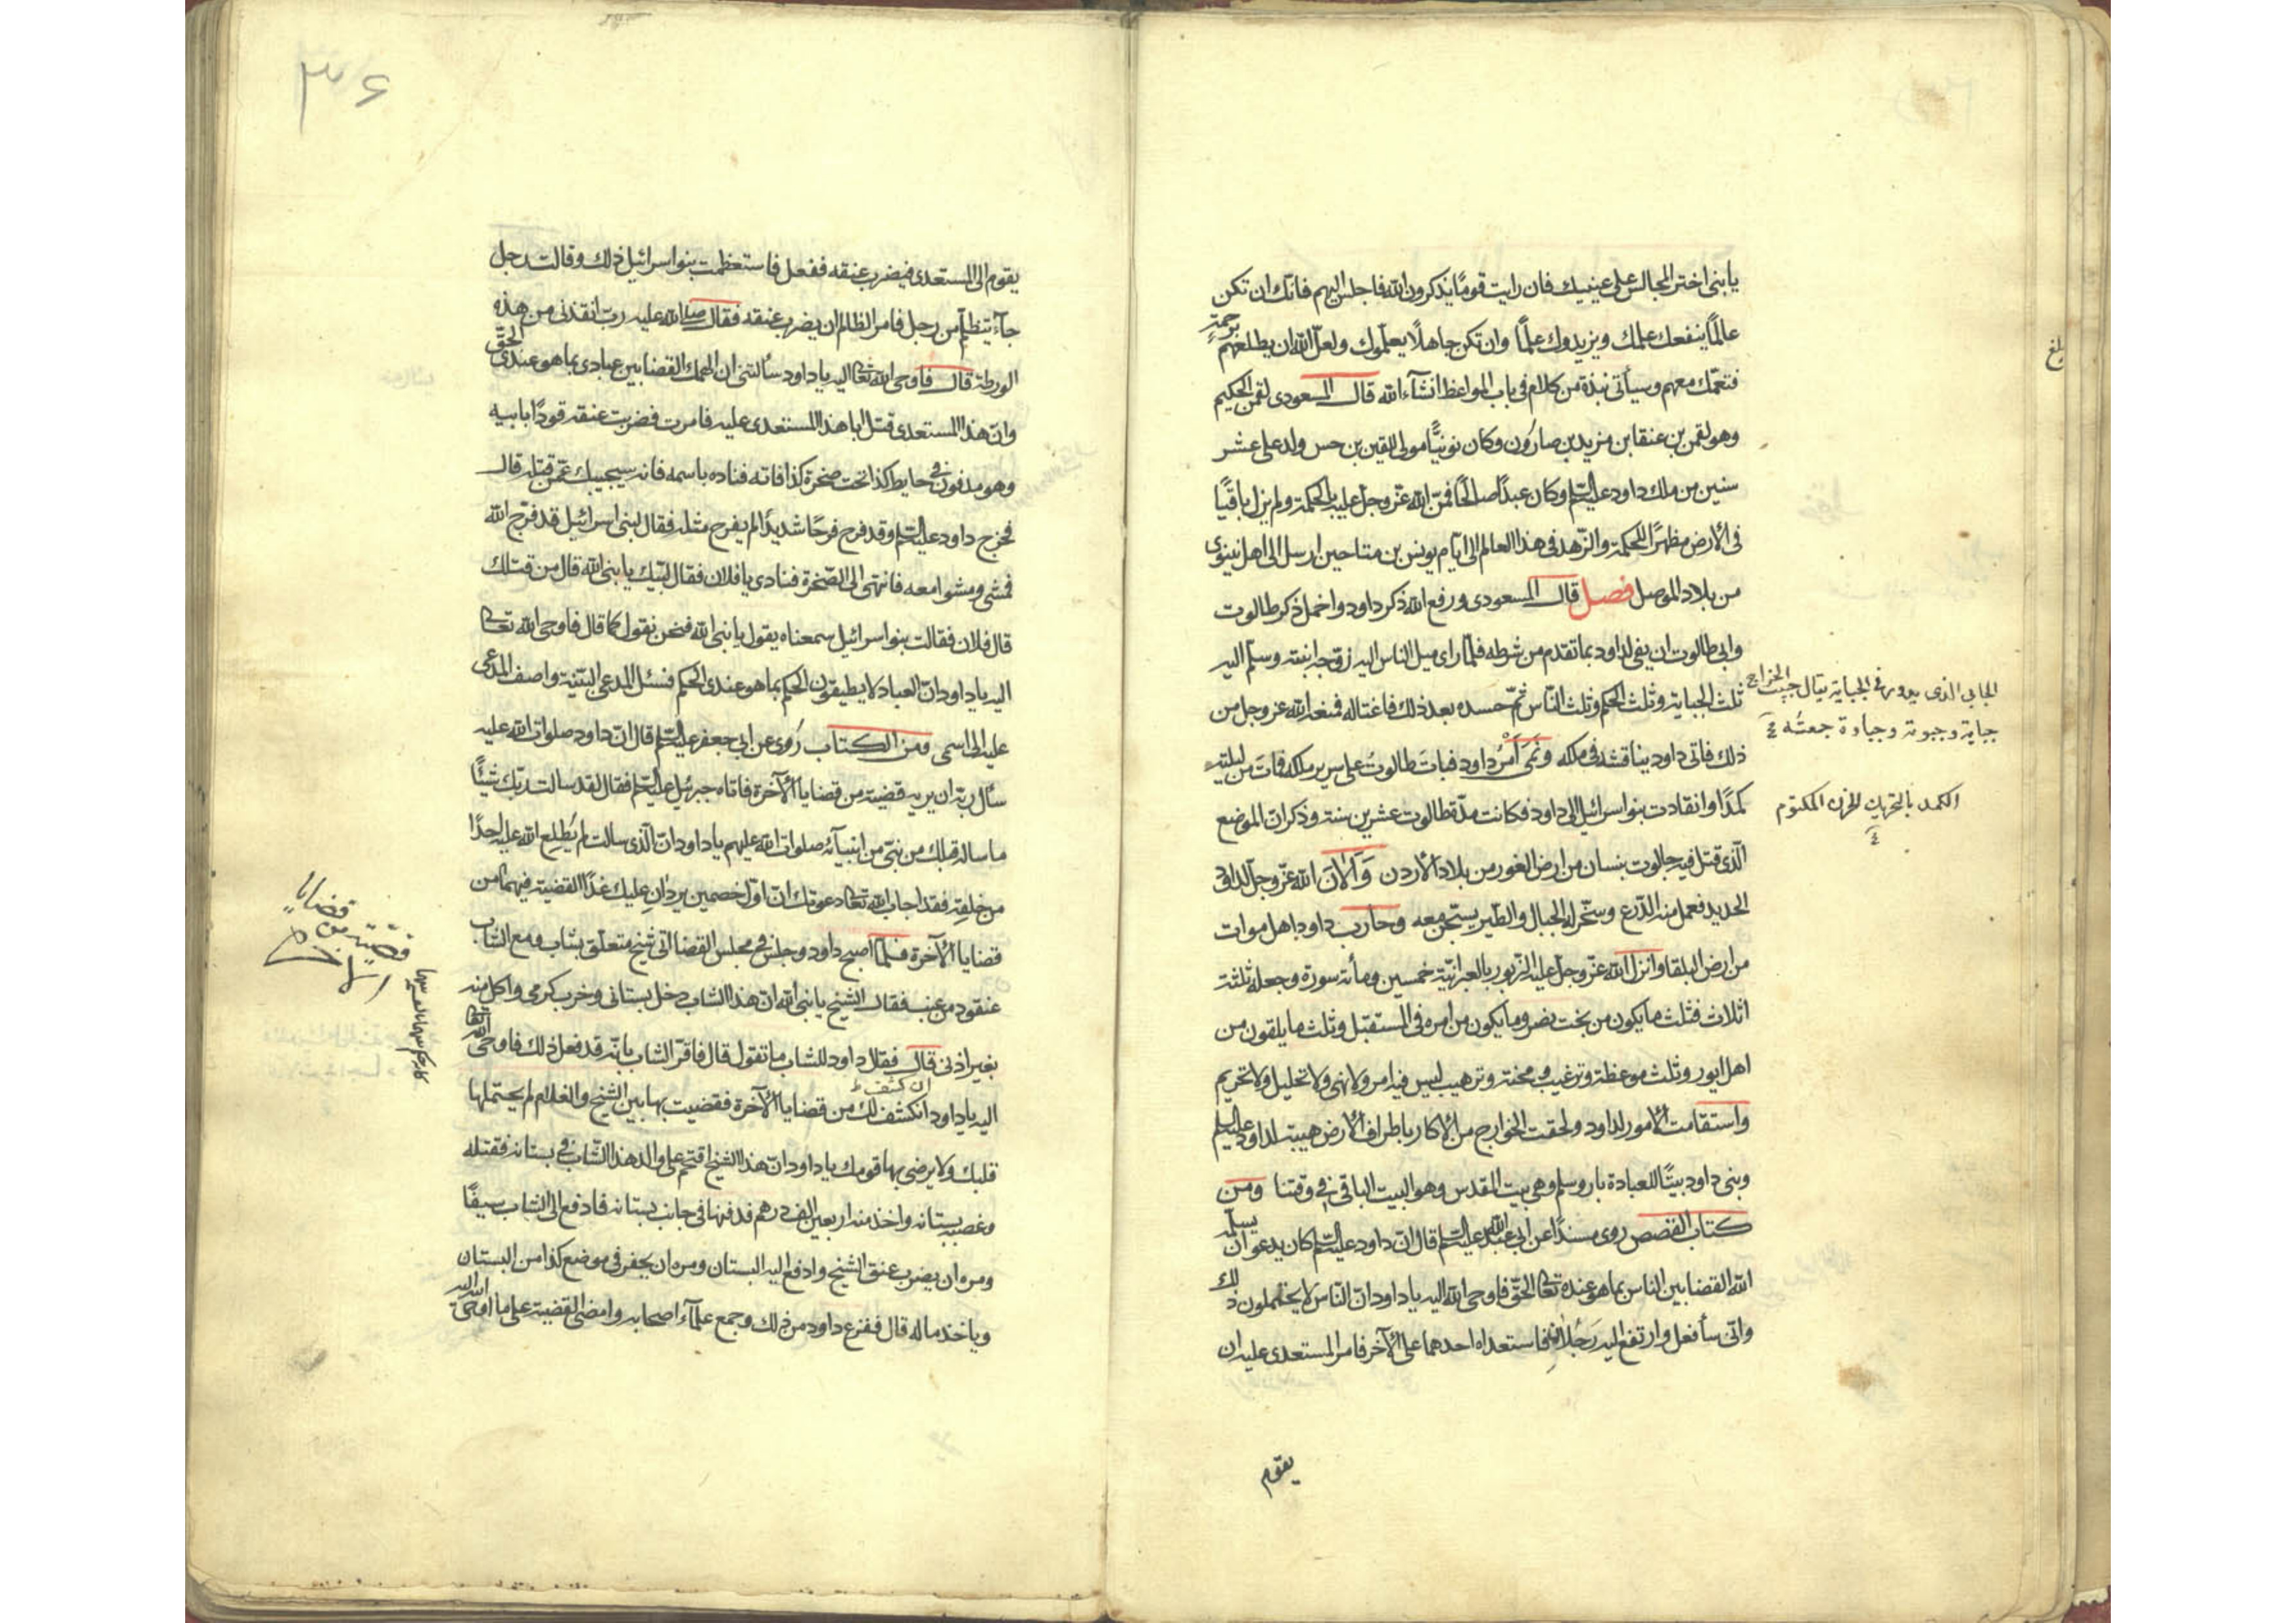 يا بنى اختر المجالس على عينيك فان رايت قومًا يذكرون الله فاجلس اليهم فانك ان تكن
عالمًا ينفعك علمك ويزيدوك علمًا وان تكن جاهلًا يعلّموك ولعلّ الله ان يطلعهم برحمةٍ
فتعمّك معهم وسيأتى نبذة من كلام فى باب المواعظ انشآء الله قال المسعودى لقمن الحكيم
وهو لقمن بن عنقا بن مزيد بن صارون وكان نوبيًّا مولى للقين بن حسر ولد على عشر
سنين من ملك داود عليه السلم وكان عبدًا صالحًا فمنّ الله عزّ وجل عليه بالحكمة ولم يزل باقيًا
فى الأرض مظهرًا للحكمة والزّهد فى هذا العالم الى ايّام يونس بن متا حين ارسل الى اهل نينوى
من بلاد الموصل فصل قال المسعودى ورفع الله ذكر داود واخمل ذكر طالوت
وابى طالوت ان يفى لداود بما تقدم من شرطه فلمّا راى ميل الناس اليه زوّجه ابنته وسلّم اليه
ثلث الجباية وثلث الحكم وثلث النّاس ثمّ حسده بعد ذلك فاغتاله فمنعه الله عز وجل من
ذلك فاتى داود يناقشه فى ملكه ونَمَى اَمْرُ داود فبات طالوتُ على سرير ملكه فمات من ليلته
كمدًا وانقادت بنو اسرائيل الى داود فكانت مدّة طالوت عشرين سنة وذكر انّ الموضع
الّذى قتل فيه جالوت بنسان من ارض الغور من بلاد الأردن وَاَلاَنَ الله عزّ وجل لداود
الحديد فعمل منه الدّرع وسخّر له الجبال والطّير يسبّحن معه وحارب داود اهل موات
من ارض البلقا وانزل الله عزّ وجل عليه الزبور بالعبرانيّة خمسين ومأنة سورة وجعله ثلثة
اثلاث فثلث ما يكون من بخت نصر وما يكون من امره فى المستقبل وثلث ما يلقون من
اهل ايور وثلث موعظة وترغيب ومحنة وترهيب ليس فيه امر ولا نهى ولا تحليل ولا تحريم
واستقامت الأمور لداود ولحقت الخوارج من الأكار باطراف الأرض هيبة لداود عليه السلم
وبنى داود بيتًا للعبادة باروسلم وهى بيت المقدس وهو البيت الباقى فى وقتنا ومن
كتاب القصص روى مسندًا عن ابى عبد الله عليه السلم قال انّ داود عليه السلم كان يدعو ان يسلّه
الله القضا بين الناس بما هو عنده تعالى الحقّ فاوحى الله اليه يا داود انّ النّاس لا يحتملون ذلك
وانّى سأفعل وارتفع اليه رَجُلاَنِ فاستعداه احدهما على الآخر فامر المستعدى عليه ان
يقوم
الجابى الذى يدور فى الجباية يقال جبيت الخراج
جباية وجبوته وجباوة جمعته
الكمد بالتحريك الحزن المكتوم
بلغ
٣٦
يقوم الى المستعدى فيضرب عنقه ففعل فاستعظمت بنو اسرائيل ذلك وقالت رجل
جآء يتظلّم من رجل فامر الظالم ان يضرب عنقه فقال صلى الله عليه ربّ انقذنى من هذه
الورطة قال فاوحى الله تعالى اليه يا داود سألتنى ان الهمك القضا بين عبادى بما هو عندى الحقّ
وانّ هذا المستعدى قتل ابا هذا المستعدى عليه فامرت فضربت عنقه قودًا بابيه
وهو مدفون فى حايط كذا تحت صخرة كذا فاته فناده باسمه فانه سيجيبك عمّن قتله قال
فخرج داود عليه السلم وقد فرح فرحًا شديدًا لم يفرح مثله فقال لبنى اسرائيل قد فرّج الله
فمشى ومشوا معه فانتهى الى الصّخرة فنادى يا فلان فقال لبّيك يا نبى الله قال من قتلك
قال فلان فقالت بنو اسرائيل سمعناه يقول يا نبى الله فنحن نقول كما قال فاوحى الله تعالى
اليه يا داود انّ العباد لا يطيقون الحكم بما هو عندى الحكم فسئل المدعى البيّنة واضف المدعى
عليه الى اسمى ومن الكتاب رُوى عن ابى جعفر عليه السلم قال انّ داود صلوات الله عليه
سأل ربّه ان يريه قضيّة من قضايا الآخرة فاتاه جبرئيل عليه السلم فقال لقد سالت ربّك شيئًا
ما ساله قبلك من نبىّ من انبيآئه صلوات الله عليهم يا داود انّ الّذى سالت لم يُطلِع الله عليه احدًا
من خلقه فقد اجاب الله تعالى دعوتك انّ اوّل خصمين يردانِ عليك غدًا القضية فيهما من
قضايا الآخرة فلمّا اصبح داود وجلس فى مجلس القضا اتى شيخ متعلّق بشاب ومع الشّاب
عنقود من عنب فقال الشيخ يا نبى الله انّ هذا الشاب دخل بستانى وخرب كرمى واكل منه
بغير اذنى قال فقال داود للشاب ما تقول قال فاقرّ الشاب بانّه قد فعل ذلك فاوحى الله تعالى
ان كشف ظ
اليه يا داود انكشف لك من قضايا الآخرة فقضيت بها بين الشيخ والغلام لم يحتملها
قلبك ولا يرضى بها قومك يا داود انّ هذا الشيخ اقتحم على والد هذا الشّاب فى بستانه فقتله
وغصبه بستانه واخذ منه اربعين الف درهم فدفنها فى جانب بستانه فادفع الى الشاب سيفًا
ومره ان يضرب عنق الشيخ وادفع اليه البستان ومره ان يحفر فى موضع كذا من البستان
وياخذ ماله قال ففزع داود من ذلك وجمع علمآء اصحابه وامضى القضية على ما اوحى الله اليه
قضيّته من قضايا